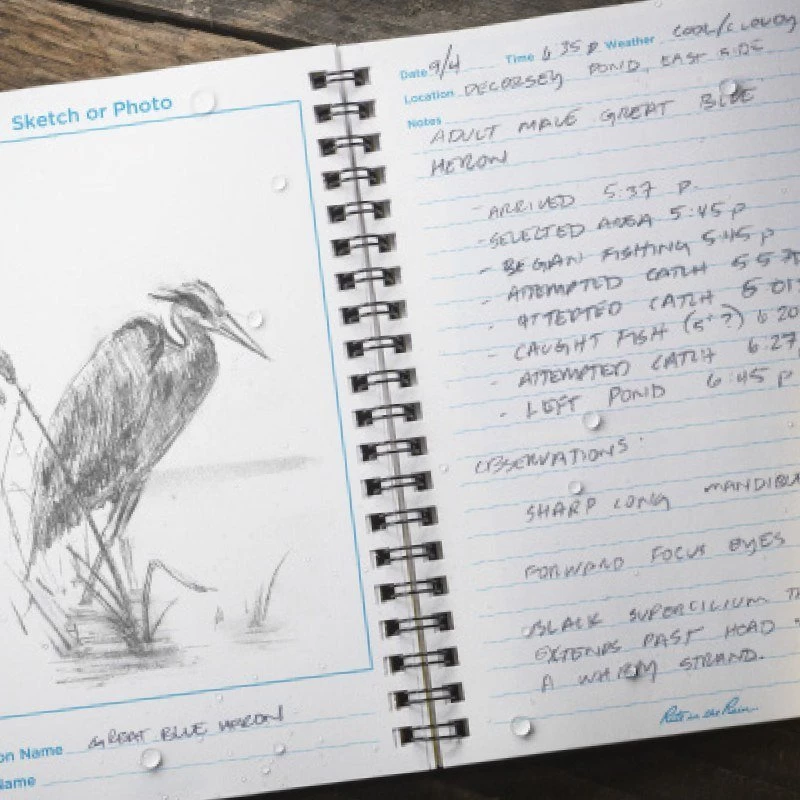 Sketch or Photo
on Name GREAT BLUE HERON
Name
Date 9/4 Time 6 35 P Weather COOL/CLOUDY
Location DECORSEY POND, EAST SIDE
Notes
ADULT MALE GREAT BLUE
HERON
- ARRIVED 5:37 P.
- SELECTED AREA 5:45 P
- BEGAN FISHING 5:45 P
- ATTEMPTED CATCH 5 57
- ATTEPTED CATCH 6 01
- CAUGHT FISH (5"?) 6 20
- ATTEMPTED CATCH 6:27
- LEFT POND 6:45 P
OBSERVATIONS:
SHARP LONG
FORWARD FOCUS EYES
BLACK SUPERCILIUM
EXTENDS PAST HEAD
A WHISPY STRAND.
Rite in the Rain